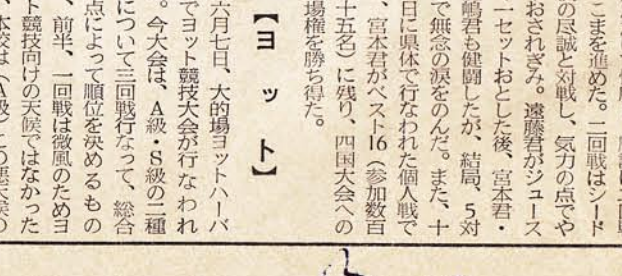 こまを進めた。二回戦はシード
の尽誠と対戦し、気力の点でや
おされぎみ。遠藤君がジュース
一セットおとした後、宮本君・
嶋君も健闘したが、結局、5対
で無念の涙をのんだ。また、十
日に県体で行なわれた個人戦で
、宮本君がベスト16（参加数百
十五名）に残り、四国大会への
場権を勝ち得た。
【ヨット】
六月七日、大的場ヨットハーバ
でヨット競技大会が行なわれ
。今大会は、A級・S級の二種
について三回戦行なって、総合
点によって順位を決めるもの
、前半、一回戦は微風のためヨ
ト競技向けの天候ではなかった
、本校は（A級）この悪天候の